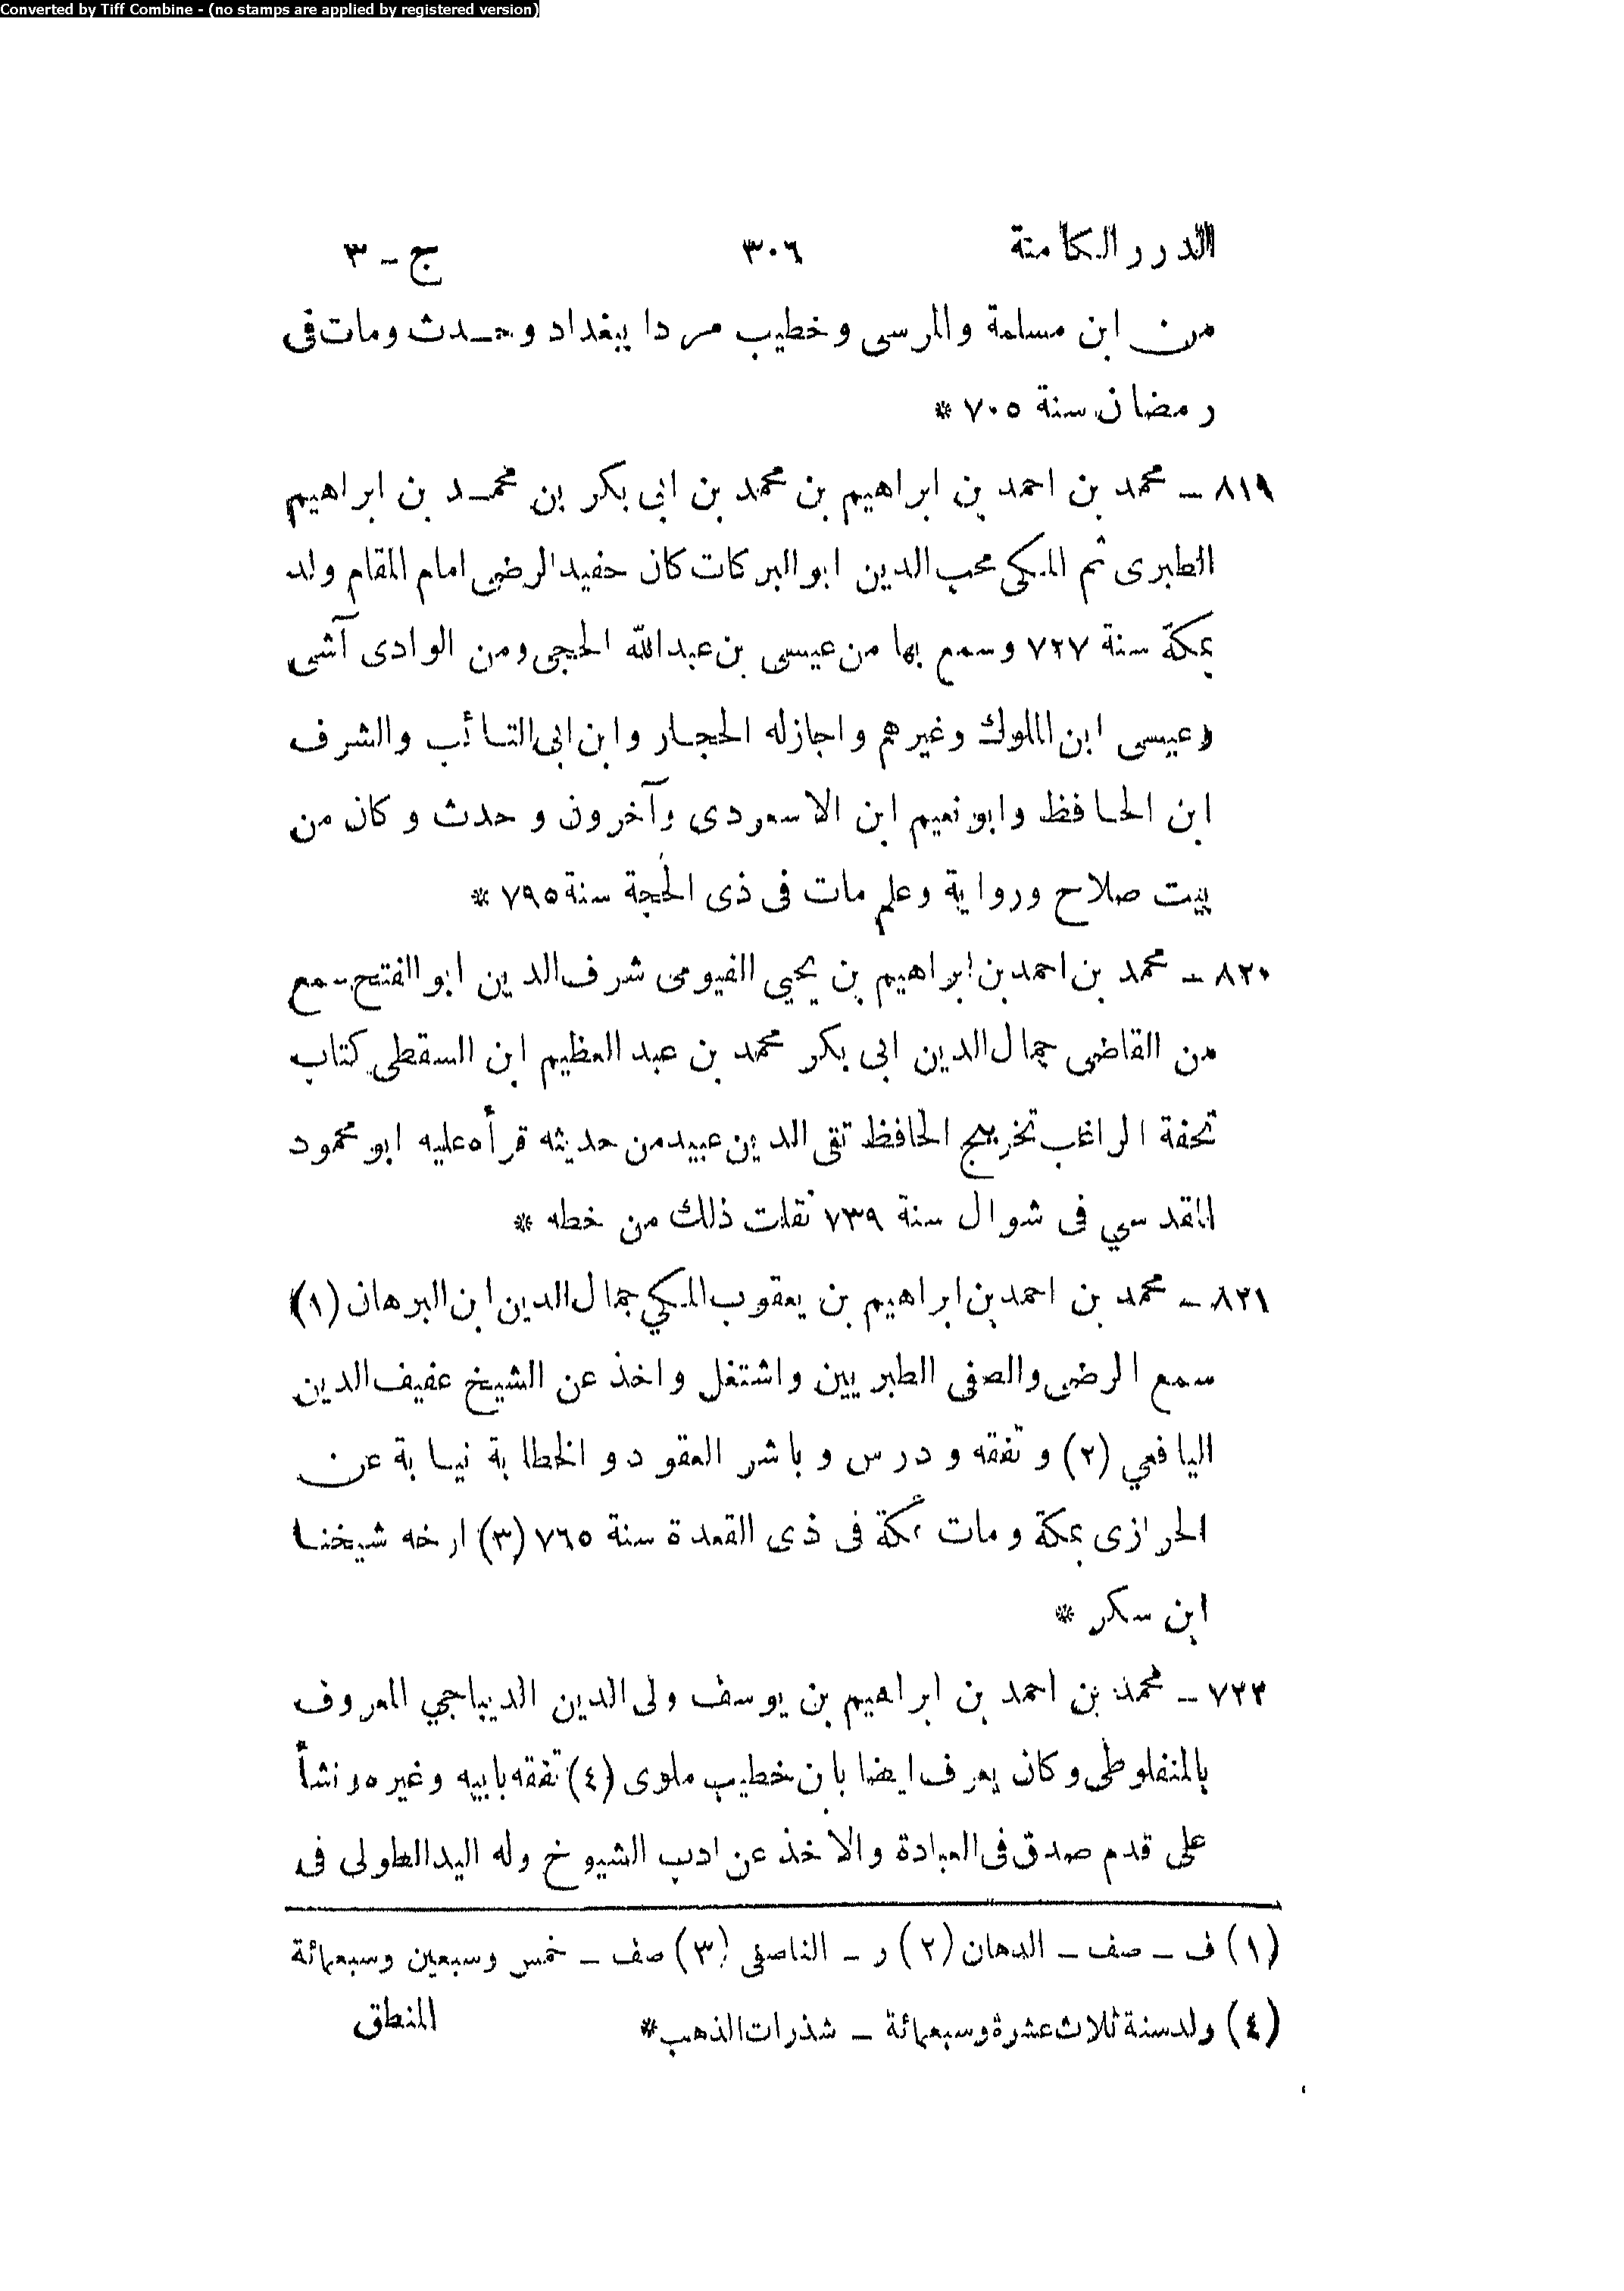 Converted by Tiff Combine - (no stamps are applied by registered version)
الدرر الكامنة ٣٠٦ ج - ٣
من ابن مسلمة والمرسى وخطيب مردا ببغداد وحدث ومات فى
رمضان سنة ٧٠٥ *
٨١٩ - محمد بن احمد بن ابراهيم بن محمد بن ابى بكر بن محمد بن ابراهيم
الطبرى ثم المكى محب الدين ابو البركات كان حفيد الرضى امام المقام ولد
بمكة سنة ٧٢٧ وسمع بها من عيسى بن عبد الله الحجى ومن الوادى آشى
وعيسى ابن الملوك وغيرهم واجازله الحجار وابن ابى التائب والشرف
ابن الحافظ وابو نعيم ابن الاسعردى وآخرون وحدث وكان من
بيت صلاح ورواية وعلم مات فى ذى الحجة سنة ٧٩٥ *
٨٢٠ - محمد بن احمد بن ابراهيم بن يحيي الفيومى شرف الدين ابو الفتح سمع
من القاضى جمال الدين ابى بكر محمد بن عبد العظيم ابن السقطى كتاب
تحفة الراغب تخريج الحافظ تقى الدين عبيد من حديثه قرأه عليه ابو محمود
المقدسي فى شوال سنة ٧٣٩ نقلت ذلك من خطه *
٨٢١ - محمد بن احمد بن ابراهيم بن يعقوب المكي جمال الدين ابن البرهان (١)
سمع الرضى والصفى الطبريين واشتغل واخذ عن الشيخ عفيف الدين
اليافعي (٢) وتفقه ودرس وباشر العقود والخطابة نيابة عن
الحرازى بمكة ومات بمكة فى ذى القعدة سنة ٧٦٥ (٣) ارخه شيخنا
ابن سكر *
٧٢٢ - محمد بن احمد بن ابراهيم بن يوسف ولى الدين الديباجي المعروف
بالمنفلوطى وكان يعرف ايضا بابن خطيب ملوى (٤) تفقه بابيه وغيره ونشأ
على قدم صدق فى العبادة والاخذ عن ادب الشيوخ وله اليد الطولى فى
(١) ف - صف - الدهان (٢) ر - الناصفى (٣) صف - خمس وسبعين وسبعمائة
(٤) ولد سنة ثلاث عشرة وسبعمائة - شذرات الذهب * المنطق